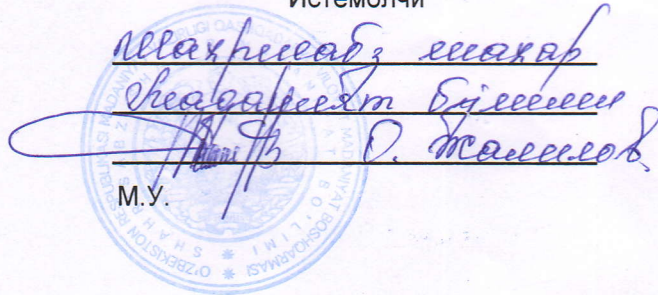 Истеъмолчи
Шахрисабз шахар
Маданият бўлими
О. Жалилов
М.У.
O'ZBEKISTON RESPUBLIKASI MADANIYAT BOSHQARMASI
SHAHRISABZ BO'LIMI